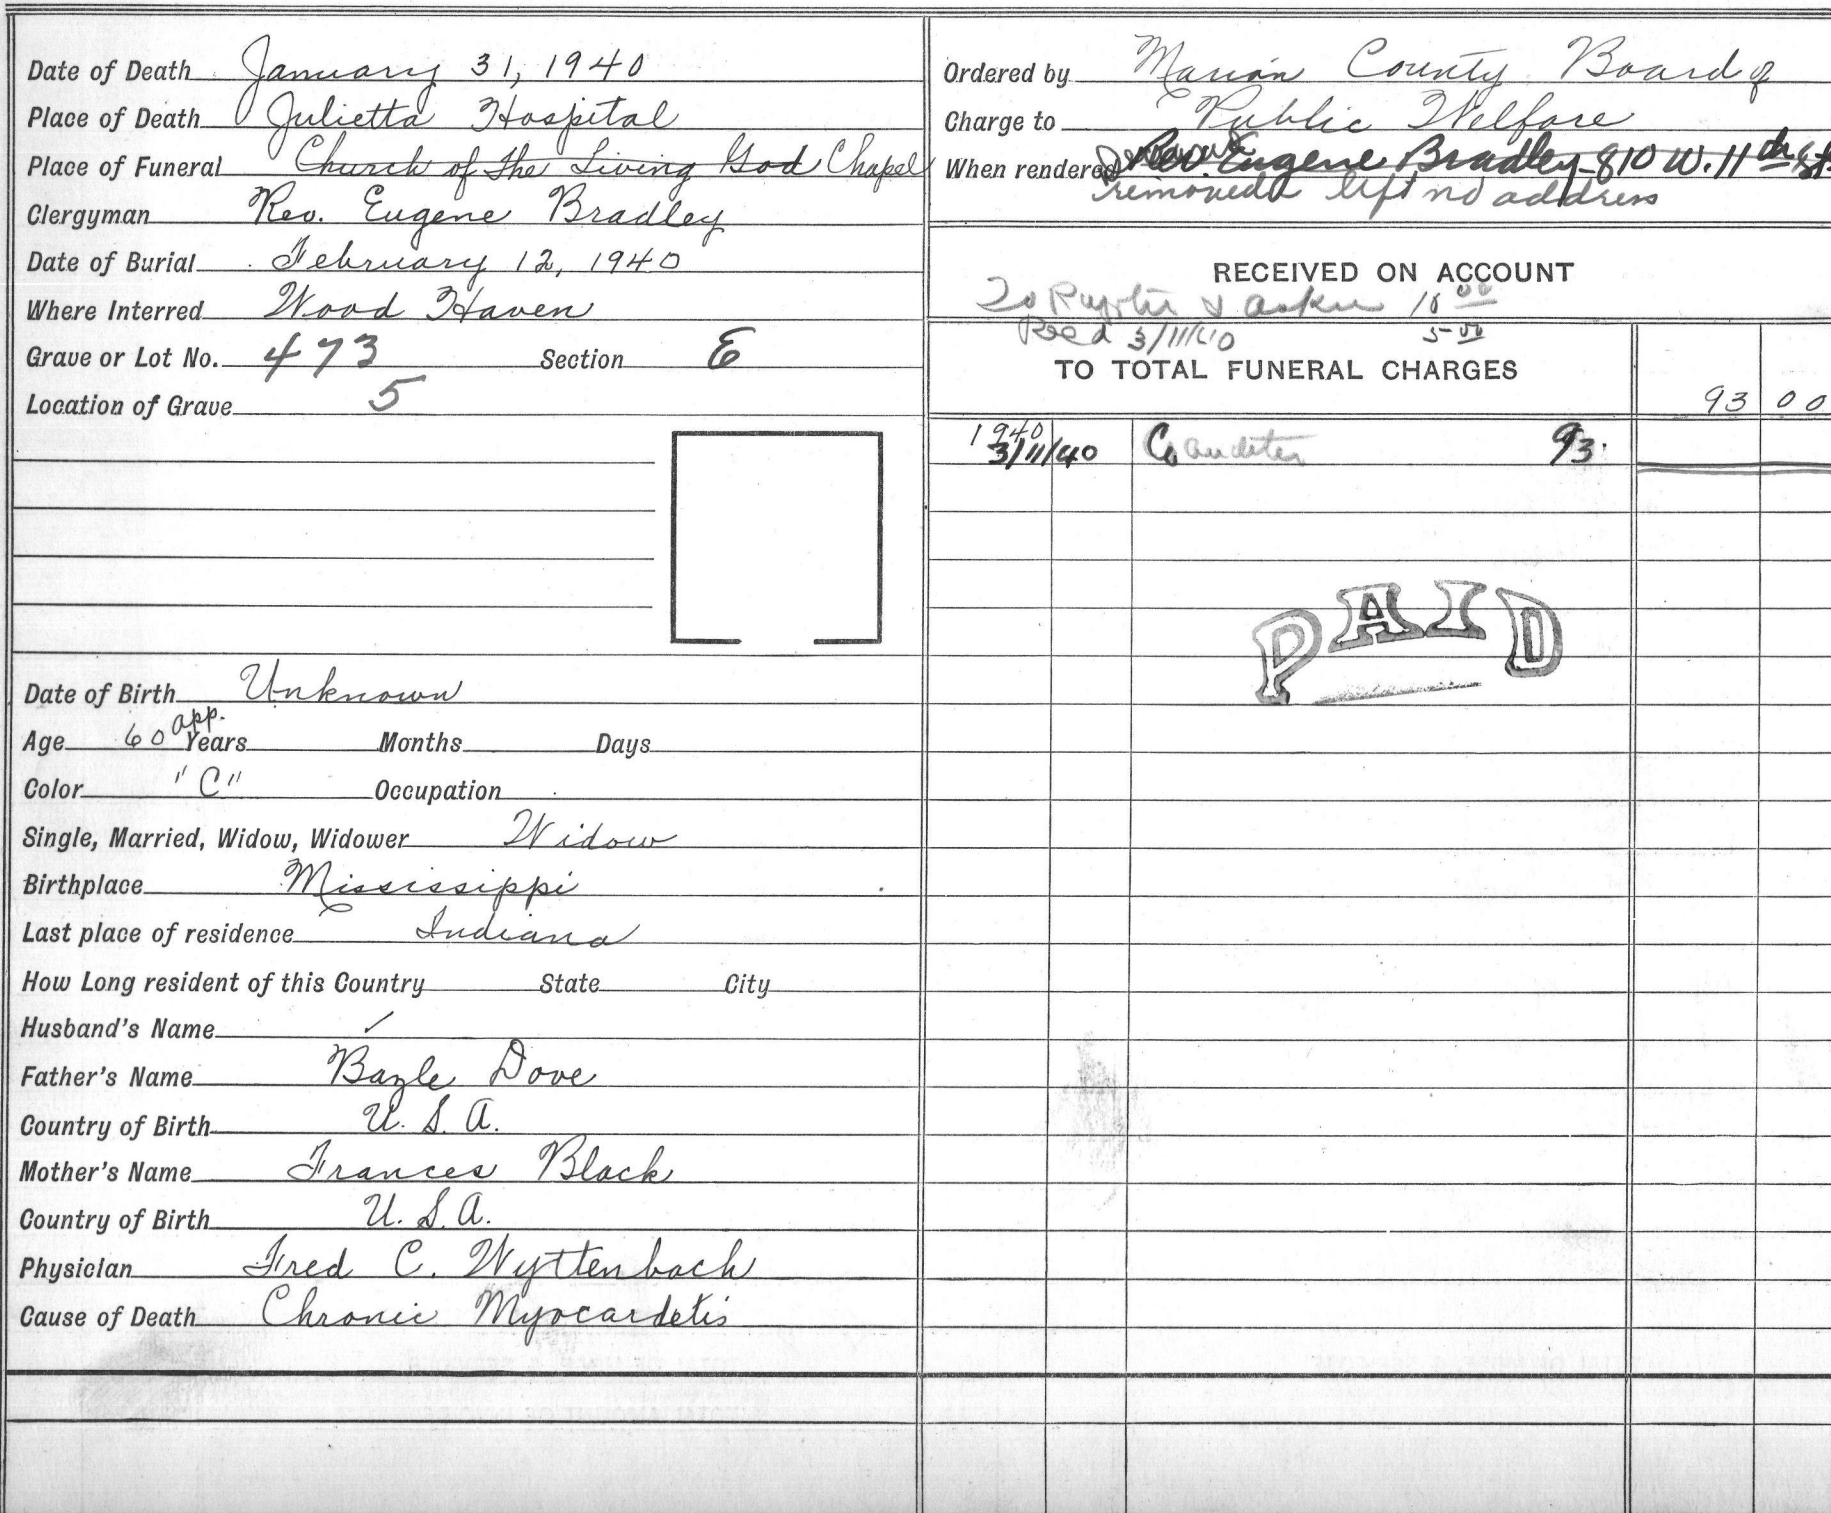 Date of Death January 31, 1940
Place of Death Julietta Hospital
Place of Funeral Church of the Living God Chapel
Clergyman Rev. Eugene Bradley
Date of Burial February 12, 1940
Where Interred Wood Haven
Grave or Lot No. 473 Section E
Location of Grave 5
Date of Birth Unknown
Age 60 app. Years Months Days
Color "C" Occupation
Single, Married, Widow, Widower Widow
Birthplace Mississippi
Last place of residence Indiana
How Long resident of this Country State City
Husband's Name ✓
Father's Name Bazle Dove
Country of Birth U. S. A.
Mother's Name Frances Black
Country of Birth U. S. A.
Physician Fred C. Wyttenbach
Cause of Death Chronic Myocardetis
Ordered by Marion County Board of
Charge to Public Welfare
When rendered Rev. Eugene Bradley - 810 W. 11th St.
removed left no address
RECEIVED ON ACCOUNT
To &
Recd 3/11/40 5.00
TO TOTAL FUNERAL CHARGES
93 00
1940
3/11/40 Co auditor 93.
PAID